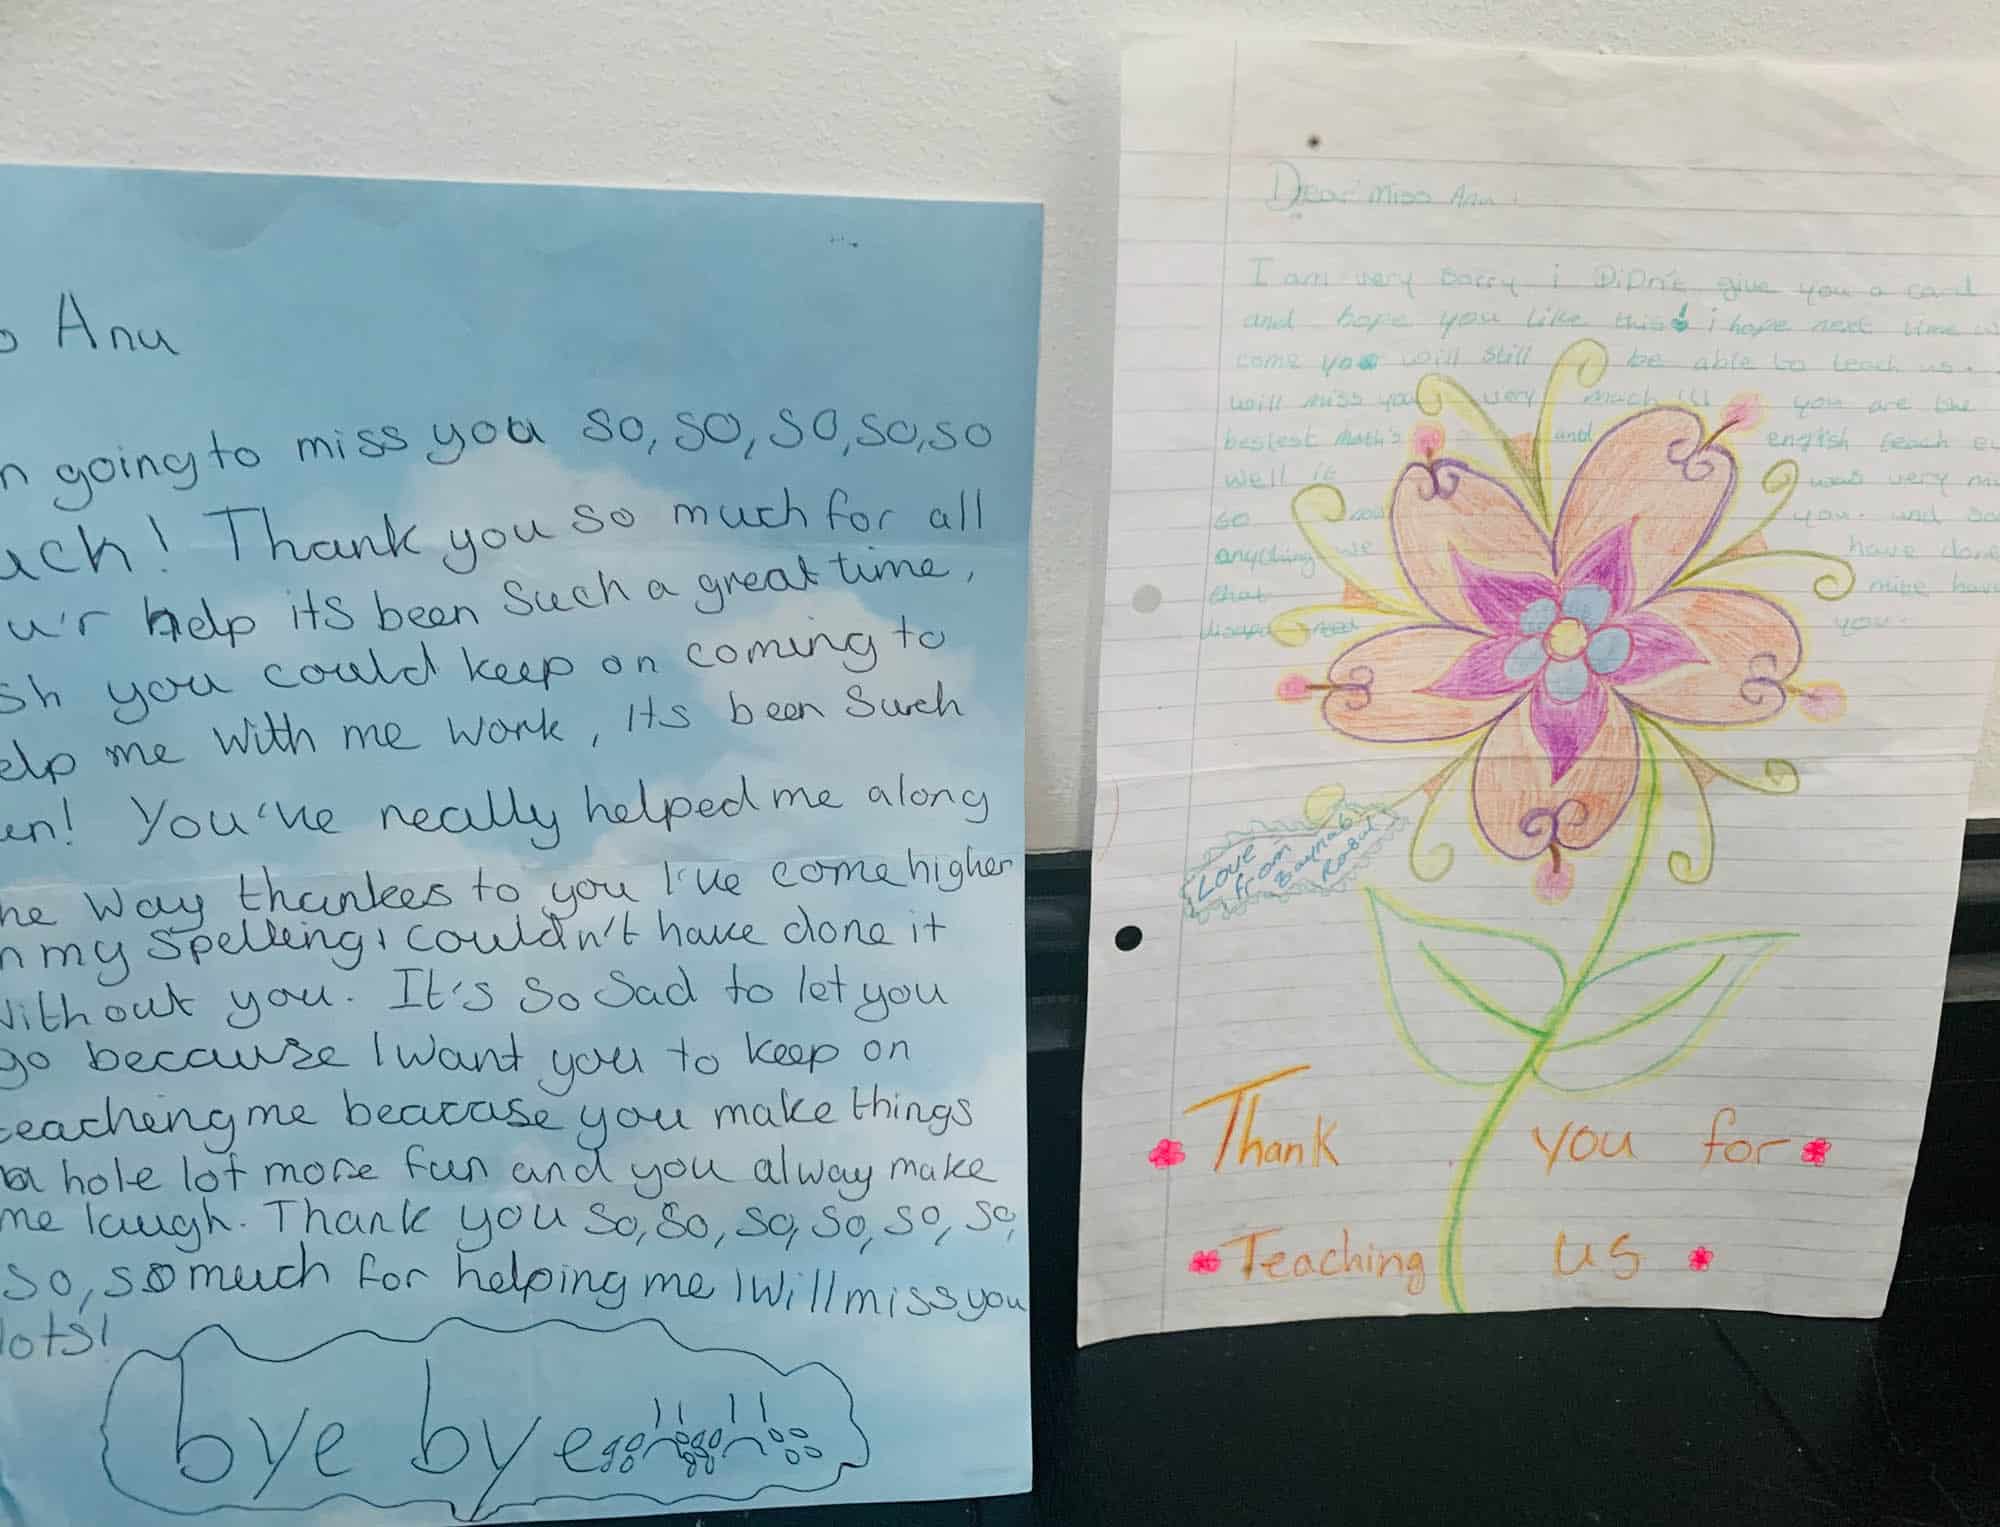 Anu
going to miss you so, so, so, so, so
uch! Thank you so much for all
u'r help its been such a great time,
sh you could keep on coming to
elp me with me work, its been such
en! You've really helped me along
he way thankees to you I've come higher
n my spelling, I couldn't have done it
without you. It's so sad to let you
go because I want you to keep on
teacheing me beacause you make things
a hole lot more fun and you alway make
me laugh. Thank you so, so, so, so, so, so,
so, so much for helping me I will miss you
lots!
bye bye
Dear Miss Anu
I am very sorry i DiDn't give you a card
and hope you like this i hope next time
come you will still be able to teach us.
will miss you very much you are the
bestest math's and english teach
well it was very
so you. and
anything we have done
that have
you.
Love
from
Zaynab
Thank you for
Teaching us